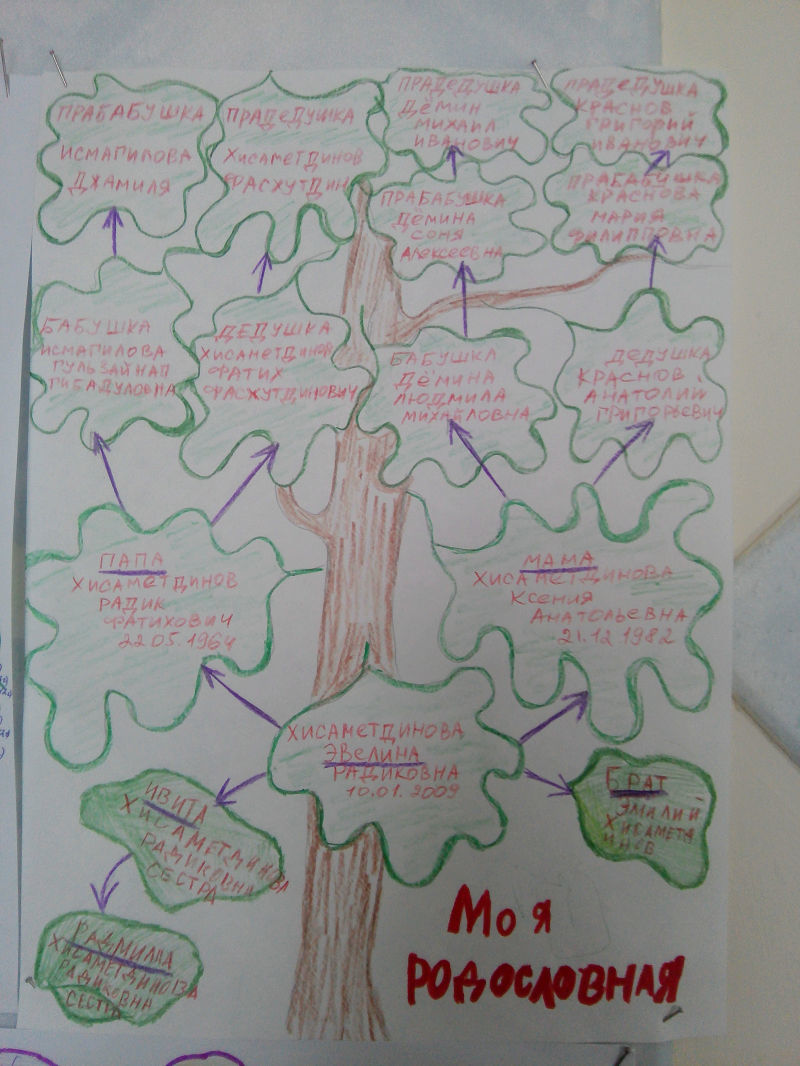 ПРАБАБУШКА
ИСМАГИЛОВА
ДЖАМИЛЯ
ПРАДЕДУШКА
ХИСАМЕТДИНОВ
ФАСХУТДИН
ПРАДЕДУШКА
ДЁМИН
МИХАИЛ
ИВАНОВИЧ
ПРАДЕДУШКА
КРАСНОВ
ГРИГОРИЙ
ИВАНОВИЧ
ПРАБАБУШКА
ДЁМИНА
СОНЯ
АЛЕКСЕЕВНА
ПРАБАБУШКА
КРАСНОВА
МАРИЯ
ФИЛИППОВНА
БАБУШКА
ИСМАГИЛОВА
ГУЛЬЗАЙНАП
ГИБАДУЛОВНА
ДЕДУШКА
ХИСАМЕТДИНОВ
ФАТИХ
ФАСХУТДИНОВИЧ
БАБУШКА
ДЁМИНА
ЛЮДМИЛА
МИХАЙЛОВНА
ДЕДУШКА
КРАСНОВ
АНАТОЛИЙ
ГРИГОРЬЕВИЧ
ПАПА
ХИСАМЕТДИНОВ
РАДИК
ФАТИХОВИЧ
22.05.1964
МАМА
ХИСАМЕТДИНОВА
КСЕНИЯ
АНАТОЛЬЕВНА
21.12.1982
ХИСАМЕТДИНОВА
ЭВЕЛИНА
РАДИКОВНА
10.01.2009
ИВИТА
ХИСАМЕТДИНОВА
РАДИКОВНА
СЕСТРА
БРАТ
ЭМИЛИЙ
ХИСАМЕТД
ИНОВ
РАДМИЛА
ХИСАМЕТДИНОВА
РАДИКОВНА
СЕСТРА
МОЯ
РОДОСЛОВНАЯ